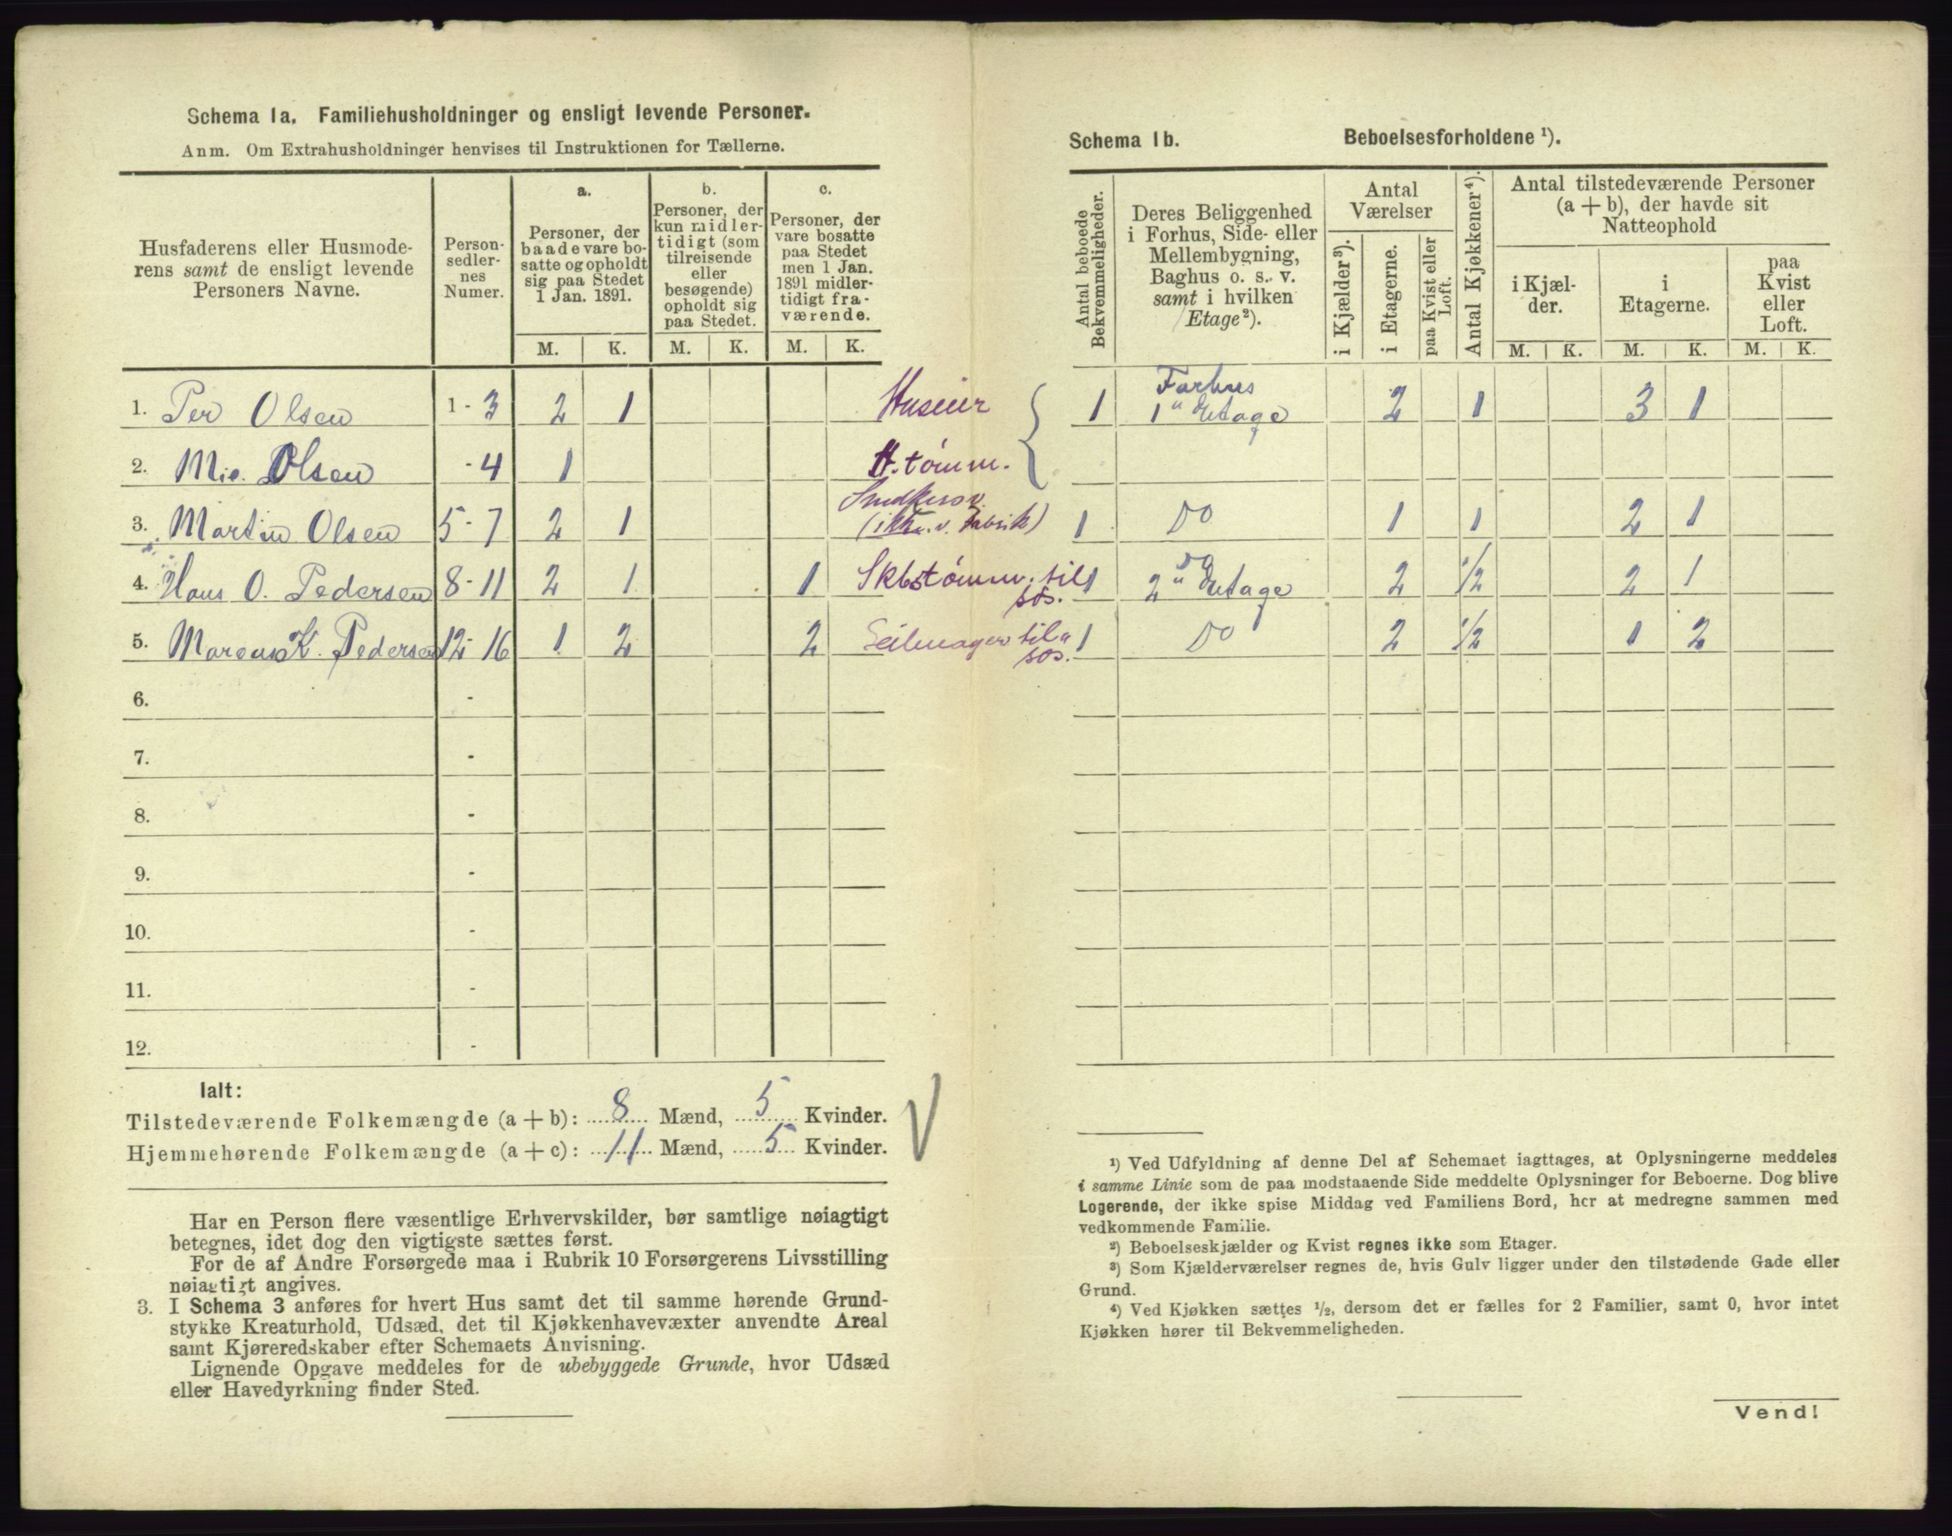 Schema 1a. Familiehusholdninger og ensligt levende Personer.
Anm. Om Extrahusholdninger henvises til Instruktionen for Tællerne.
Husfaderens eller Husmode-
rens samt de ensligt levende
Personers Navne.
Person-
sedler-
nes
Numer.
a.
Personer, der
baade vare bo-
satte og opholdt
sig paa Stedet
1 Jan. 1891.
M. K.
b.
Personer, der
kun midler-
tidigt (som
tilreisende
eller
besøgende)
opholdt sig
paa Stedet.
M. K.
c.
Personer, der
vare bosatte
paa Stedet
men 1 Jan.
1891 midler-
tidigt fra-
værende.
M. K.
1. Per Olsen 1 - 3 2 1 Huseier
2. Mie. Olsen - 4 1 H. tømm.
3. Martin Olsen 5 - 7 2 1
4. Hans O. Pedersen 8 - 11 2 1 1 Skbstømm. til
søs.
5. Marcus K. Pedersen 12 - 16 1 2 2 Seilmager til
søs.
6. -
7. -
8. -
9. -
10. -
11. -
12. -
Ialt:
Tilstedeværende Folkemængde (a + b): 8 Mænd, 5 Kvinder.
Hjemmehørende Folkemængde (a + c): 11 Mænd, 5 Kvinder.
Har en Person flere væsentlige Erhvervskilder, bør samtlige nøiagtigt
betegnes, idet dog den vigtigste sættes først.
For de af Andre Forsørgede maa i Rubrik 10 Forsørgerens Livsstilling
nøiagtigt angives.
3. I Schema 3 anføres for hvert Hus samt det til samme hørende Grund-
stykke Kreaturhold, Udsæd, det til Kjøkkenhavevæxter anvendte Areal
samt Kjøreredskaber efter Schemaets Anvisning.
Lignende Opgave meddeles for de ubebyggede Grunde, hvor Udsæd
eller Havedyrkning finder Sted.
Schema 1b. Beboelsesforholdene ¹).
Antal beboede
Bekvemmeligheder.
Deres Beliggenhed
i Forhus, Side- eller
Mellembygning,
Baghus o. s. v.
samt i hvilken
Etage²).
Antal
Værelser
i Kjælder³).
i Etagerne.
paa Kvist eller
Loft.
Antal Kjøkkener⁴).
Antal tilstedeværende Personer
(a + b), der havde sit
Natteophold
i Kjæl-
der.
M. K.
i
Etagerne.
M. K.
paa
Kvist
eller
Loft.
M. K.
Forhus
1 1ᵘ Etage 2 1 3 1
1 Do 1 1 2 1
Do
1 2ᵘ Etage 2 1/2 2 1
1 Do 2 1/2 1 2
¹) Ved Udfyldning af denne Del af Schemaet iagttages, at Oplysningerne meddeles
i samme Linie som de paa modstaaende Side meddelte Oplysninger for Beboerne. Dog blive
Logerende, der ikke spise Middag ved Familiens Bord, her at medregne sammen med
vedkommende Familie.
²) Beboelseskjælder og Kvist regnes ikke som Etager.
³) Som Kjælderværelser regnes de, hvis Gulv ligger under den tilstødende Gade eller
Grund.
⁴) Ved Kjøkken sættes ½, dersom det er fælles for 2 Familier, samt 0, hvor intet
Kjøkken hører til Bekvemmeligheden.
Vend!